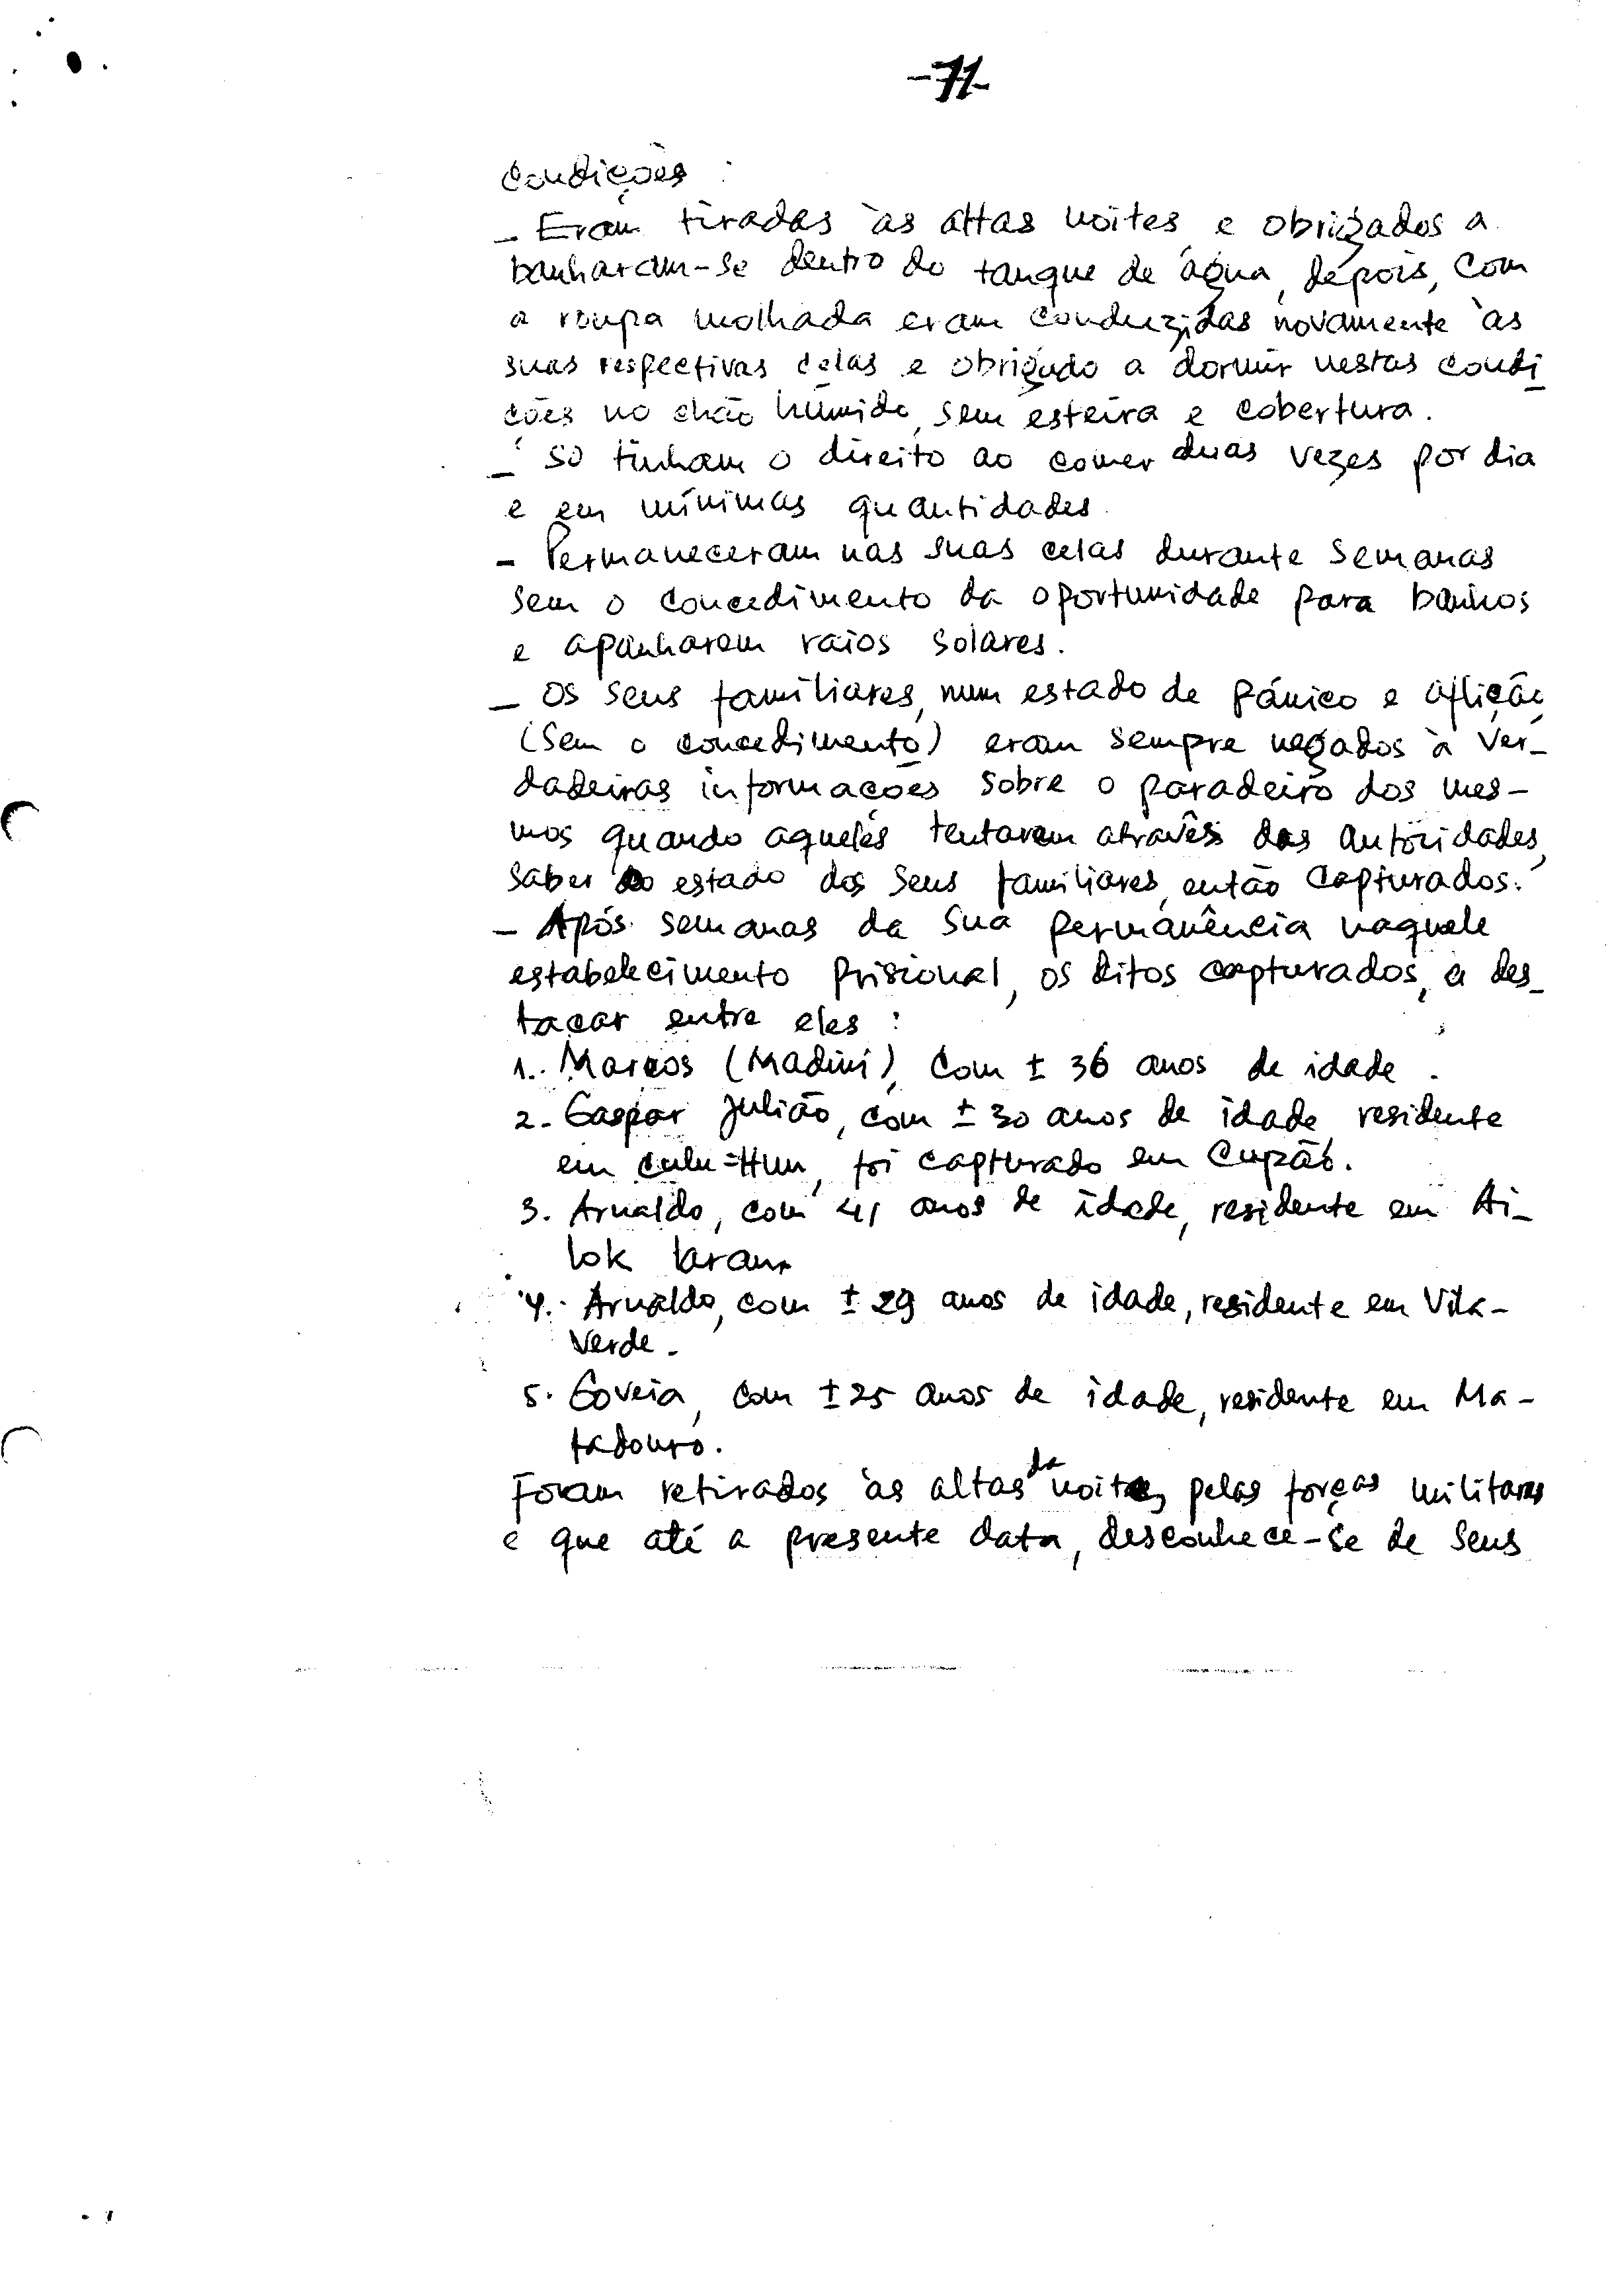 -71-
Condições :
- Eram tiradas às altas noites e obrigados a
banharam-se dentro do tanque de água, depois, com
a roupa molhada eram conduzidas novamente às
suas respectivas celas e obrigado a dormir nestas condi
ções no chão húmido, sem esteira e cobertura.
- só tinham o direito ao comer duas vezes por dia
e em mínimas quantidades.
- Permaneceram nas suas celas durante semanas
sem o concedimento da oportunidade para banhos
e apanharem raios solares.
- Os seus familiares, num estado de pánico e aflição
(sem o concedimento) eram sempre negados à ver-
dadeiras informações sobre o paradeiro dos mes-
mos quando aqueles tentarem através das autoridades,
saber do estado dos seus familiares, então capturados.
- Após semanas da sua permanência naquele
estabelecimento prisional, os ditos capturados, a des-
tacar entre eles :
1. Marcos (Madini), com ± 36 anos de idade.
2- Gaspar Julião, com ± 30 anos de idade residente
em Culu=Hun, foi capturado em Cupão.
3. Arnaldo, com 41 anos de idade, residente em Ai-
lok laram
4. Arnaldo, com ± 29 anos de idade, residente em Vila-
Verde.
5. Goveia, com ± 25 anos de idade, residente em Ma-
tadouro.
Foram retirados às altas da noite, pelas forças militares
e que até a presente data, desconhece-se de seus